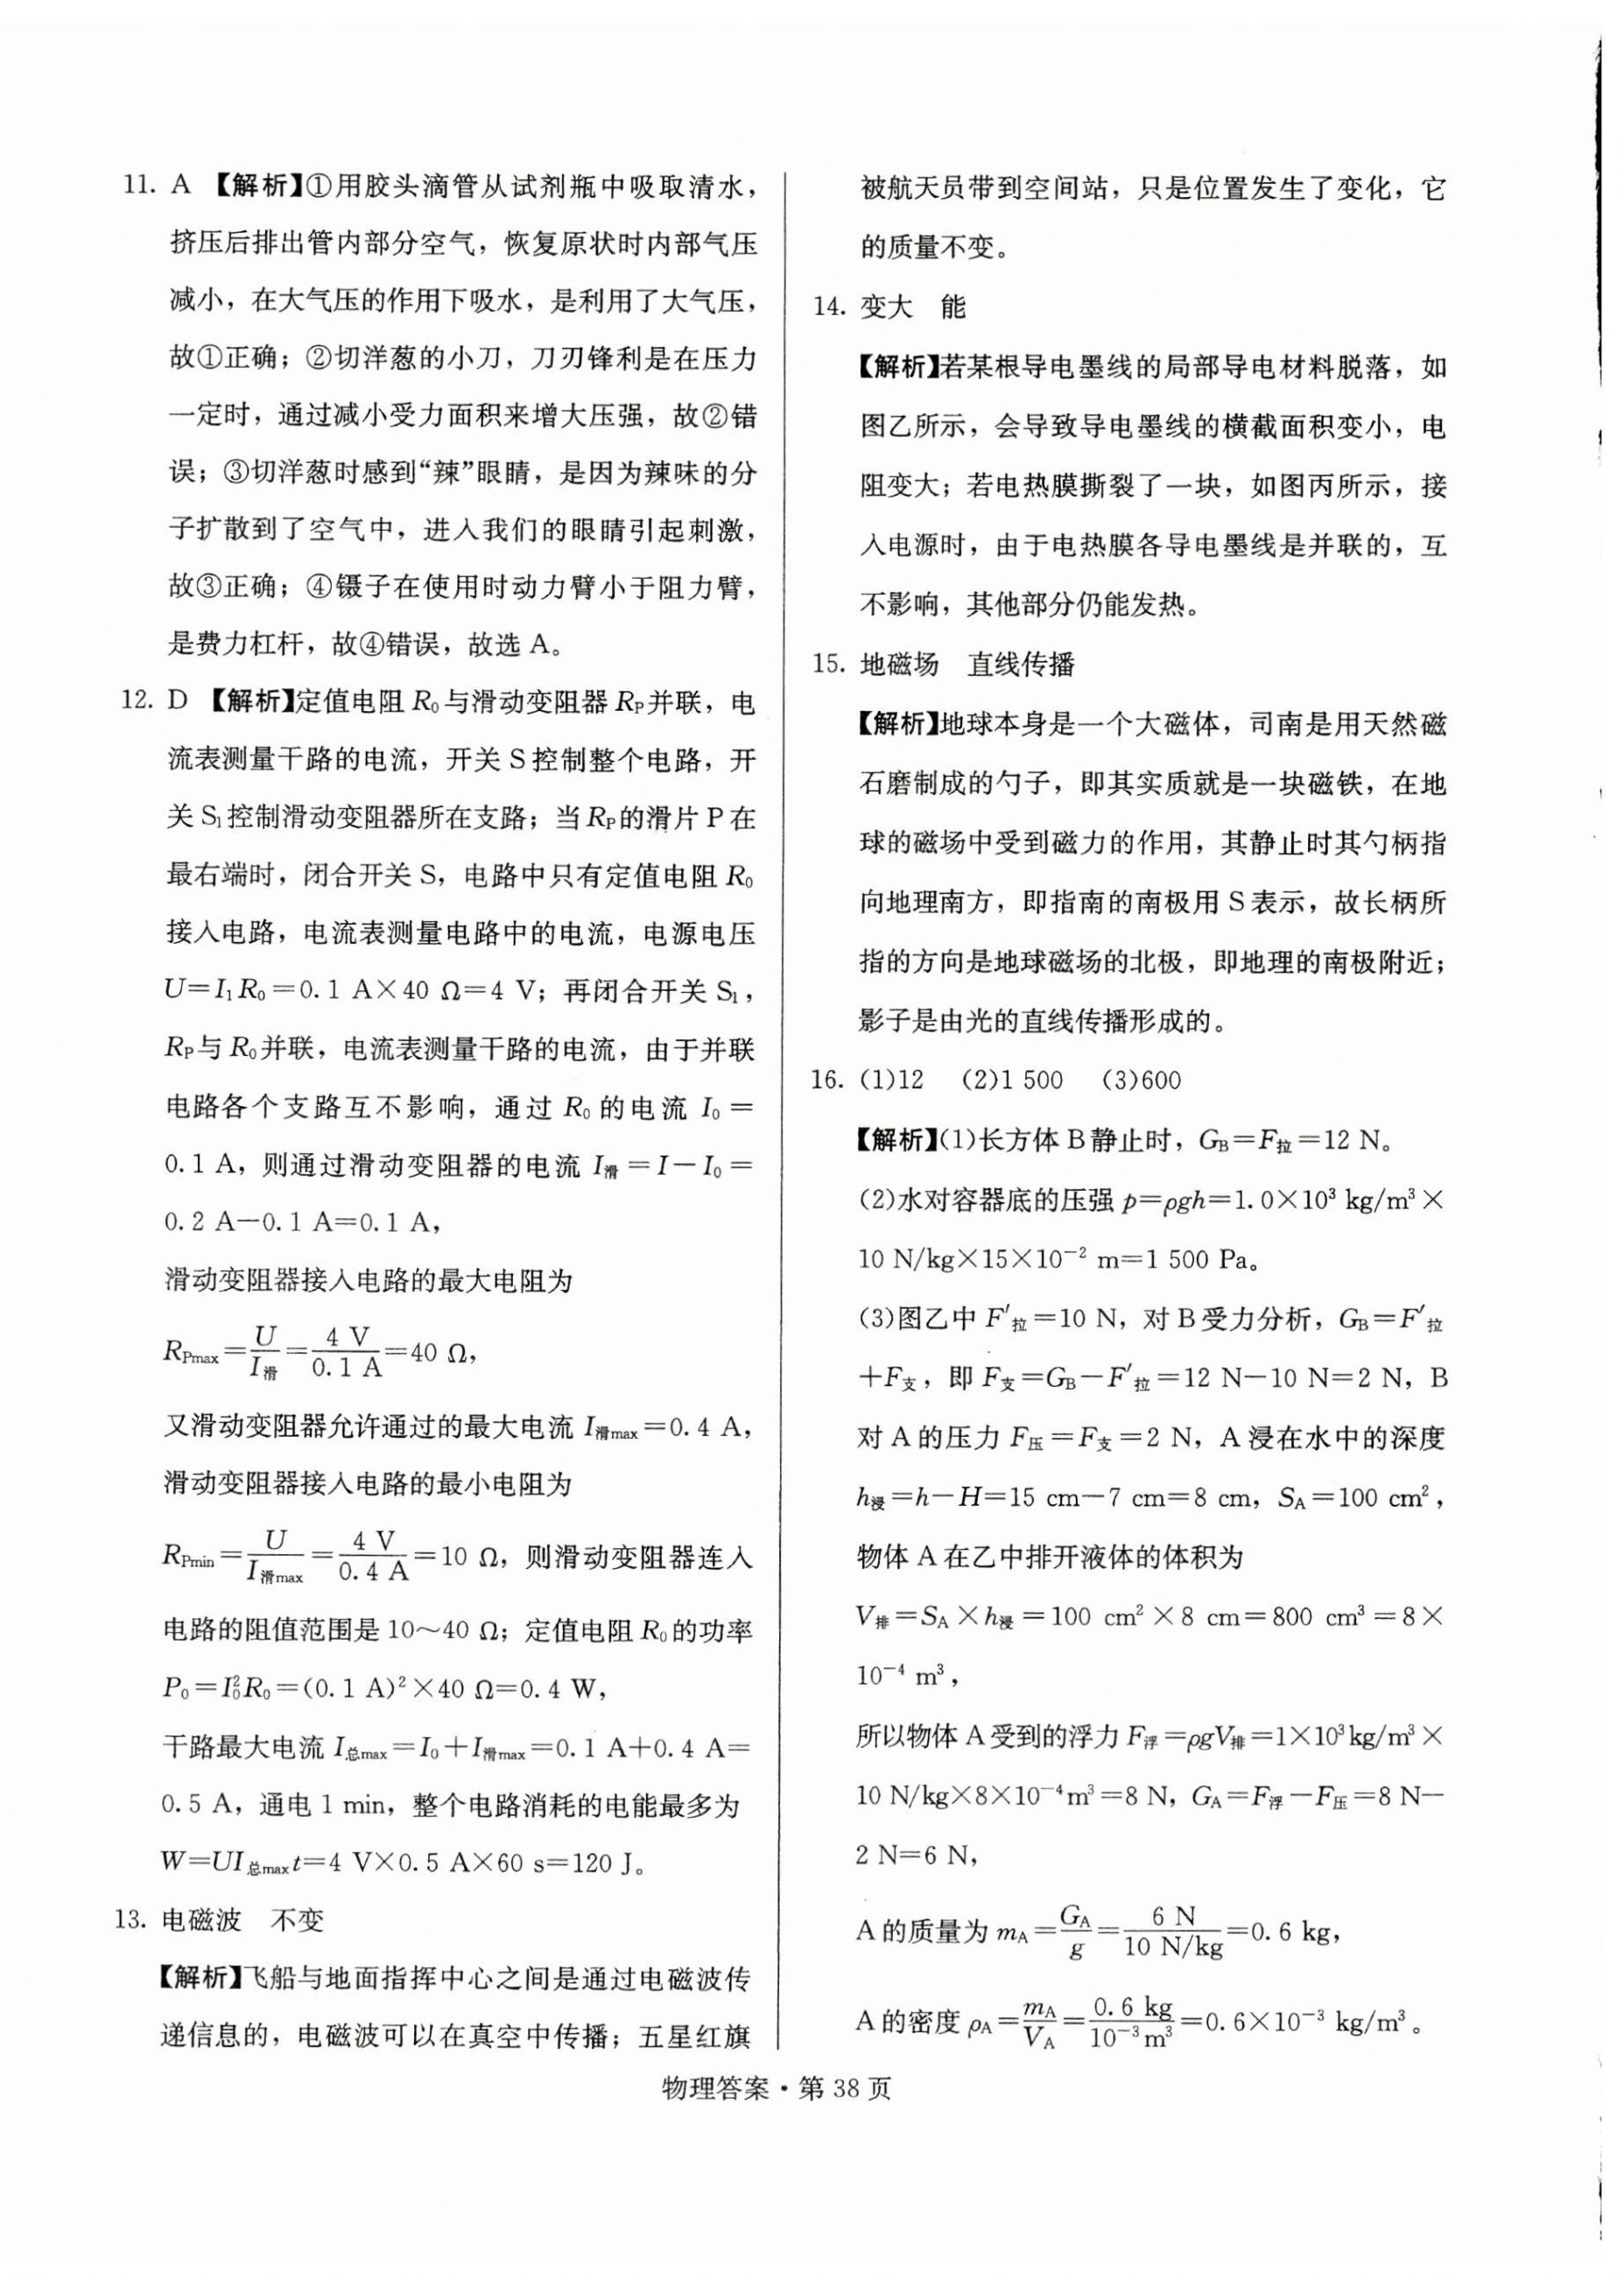 11. A 【解析】①用胶头滴管从试剂瓶中吸取清水，
挤压后排出管内部分空气，恢复原状时内部气压
减小，在大气压的作用下吸水，是利用了大气压，
故①正确；②切洋葱的小刀，刀刃锋利是在压力
一定时，通过减小受力面积来增大压强，故②错
误；③切洋葱时感到“辣”眼睛，是因为辣味的分
子扩散到了空气中，进入我们的眼睛引起刺激，
故③正确；④镊子在使用时动力臂小于阻力臂，
是费力杠杆，故④错误，故选 A。
12. D 【解析】定值电阻 R₀与滑动变阻器 R_P并联，电
流表测量干路的电流，开关 S 控制整个电路，开
关 S₁控制滑动变阻器所在支路；当 R_P的滑片 P 在
最右端时，闭合开关 S，电路中只有定值电阻 R₀
接入电路，电流表测量电路中的电流，电源电压
U=I₁R₀=0.1 A×40 Ω=4 V；再闭合开关 S₁，
R_P与 R₀并联，电流表测量干路的电流，由于并联
电路各个支路互不影响，通过 R₀ 的电流 I₀ =
0.1 A，则通过滑动变阻器的电流 I滑 = I－I₀ =
0.2 A－0.1 A=0.1 A，
滑动变阻器接入电路的最大电阻为
R_Pmax=U/I滑=4 V/0.1 A=40 Ω，
又滑动变阻器允许通过的最大电流 I滑max=0.4 A，
滑动变阻器接入电路的最小电阻为
R_Pmin=U/I滑max=4 V/0.4 A=10 Ω，则滑动变阻器连入
电路的阻值范围是 10～40 Ω；定值电阻 R₀的功率
P₀=I₀²R₀=(0.1 A)²×40 Ω=0.4 W，
干路最大电流 I总max=I₀+I滑max=0.1 A+0.4 A=
0.5 A，通电 1 min，整个电路消耗的电能最多为
W=UI总max t=4 V×0.5 A×60 s=120 J。
13. 电磁波 不变
【解析】飞船与地面指挥中心之间是通过电磁波传
递信息的，电磁波可以在真空中传播；五星红旗
被航天员带到空间站，只是位置发生了变化，它
的质量不变。
14. 变大 能
【解析】若某根导电墨线的局部导电材料脱落，如
图乙所示，会导致导电墨线的横截面积变小，电
阻变大；若电热膜撕裂了一块，如图丙所示，接
入电源时，由于电热膜各导电墨线是并联的，互
不影响，其他部分仍能发热。
15. 地磁场 直线传播
【解析】地球本身是一个大磁体，司南是用天然磁
石磨制成的勺子，即其实质就是一块磁铁，在地
球的磁场中受到磁力的作用，其静止时其勺柄指
向地理南方，即指南的南极用 S 表示，故长柄所
指的方向是地球磁场的北极，即地理的南极附近；
影子是由光的直线传播形成的。
16. (1)12 (2)1 500 (3)600
【解析】(1)长方体 B 静止时，G_B=F拉=12 N。
(2)水对容器底的压强 p=ρgh=1.0×10³ kg/m³×
10 N/kg×15×10⁻² m=1 500 Pa。
(3)图乙中 F′拉=10 N，对 B 受力分析，G_B=F′拉
+F支，即 F支=G_B－F′拉=12 N－10 N=2 N，B
对 A 的压力 F压=F支=2 N，A 浸在水中的深度
h浸=h－H=15 cm－7 cm=8 cm，S_A=100 cm²，
物体 A 在乙中排开液体的体积为
V排=S_A×h浸=100 cm²×8 cm=800 cm³=8×
10⁻⁴ m³，
所以物体 A 受到的浮力 F浮=ρgV排=1×10³kg/m³×
10 N/kg×8×10⁻⁴m³=8 N，G_A=F浮－F压=8 N－
2 N=6 N，
A 的质量为 m_A=G_A/g=6 N/10 N/kg=0.6 kg，
A 的密度 ρ_A=m_A/V_A=0.6 kg/10⁻³m³=0.6×10⁻³ kg/m³。
物理答案·第 38 页